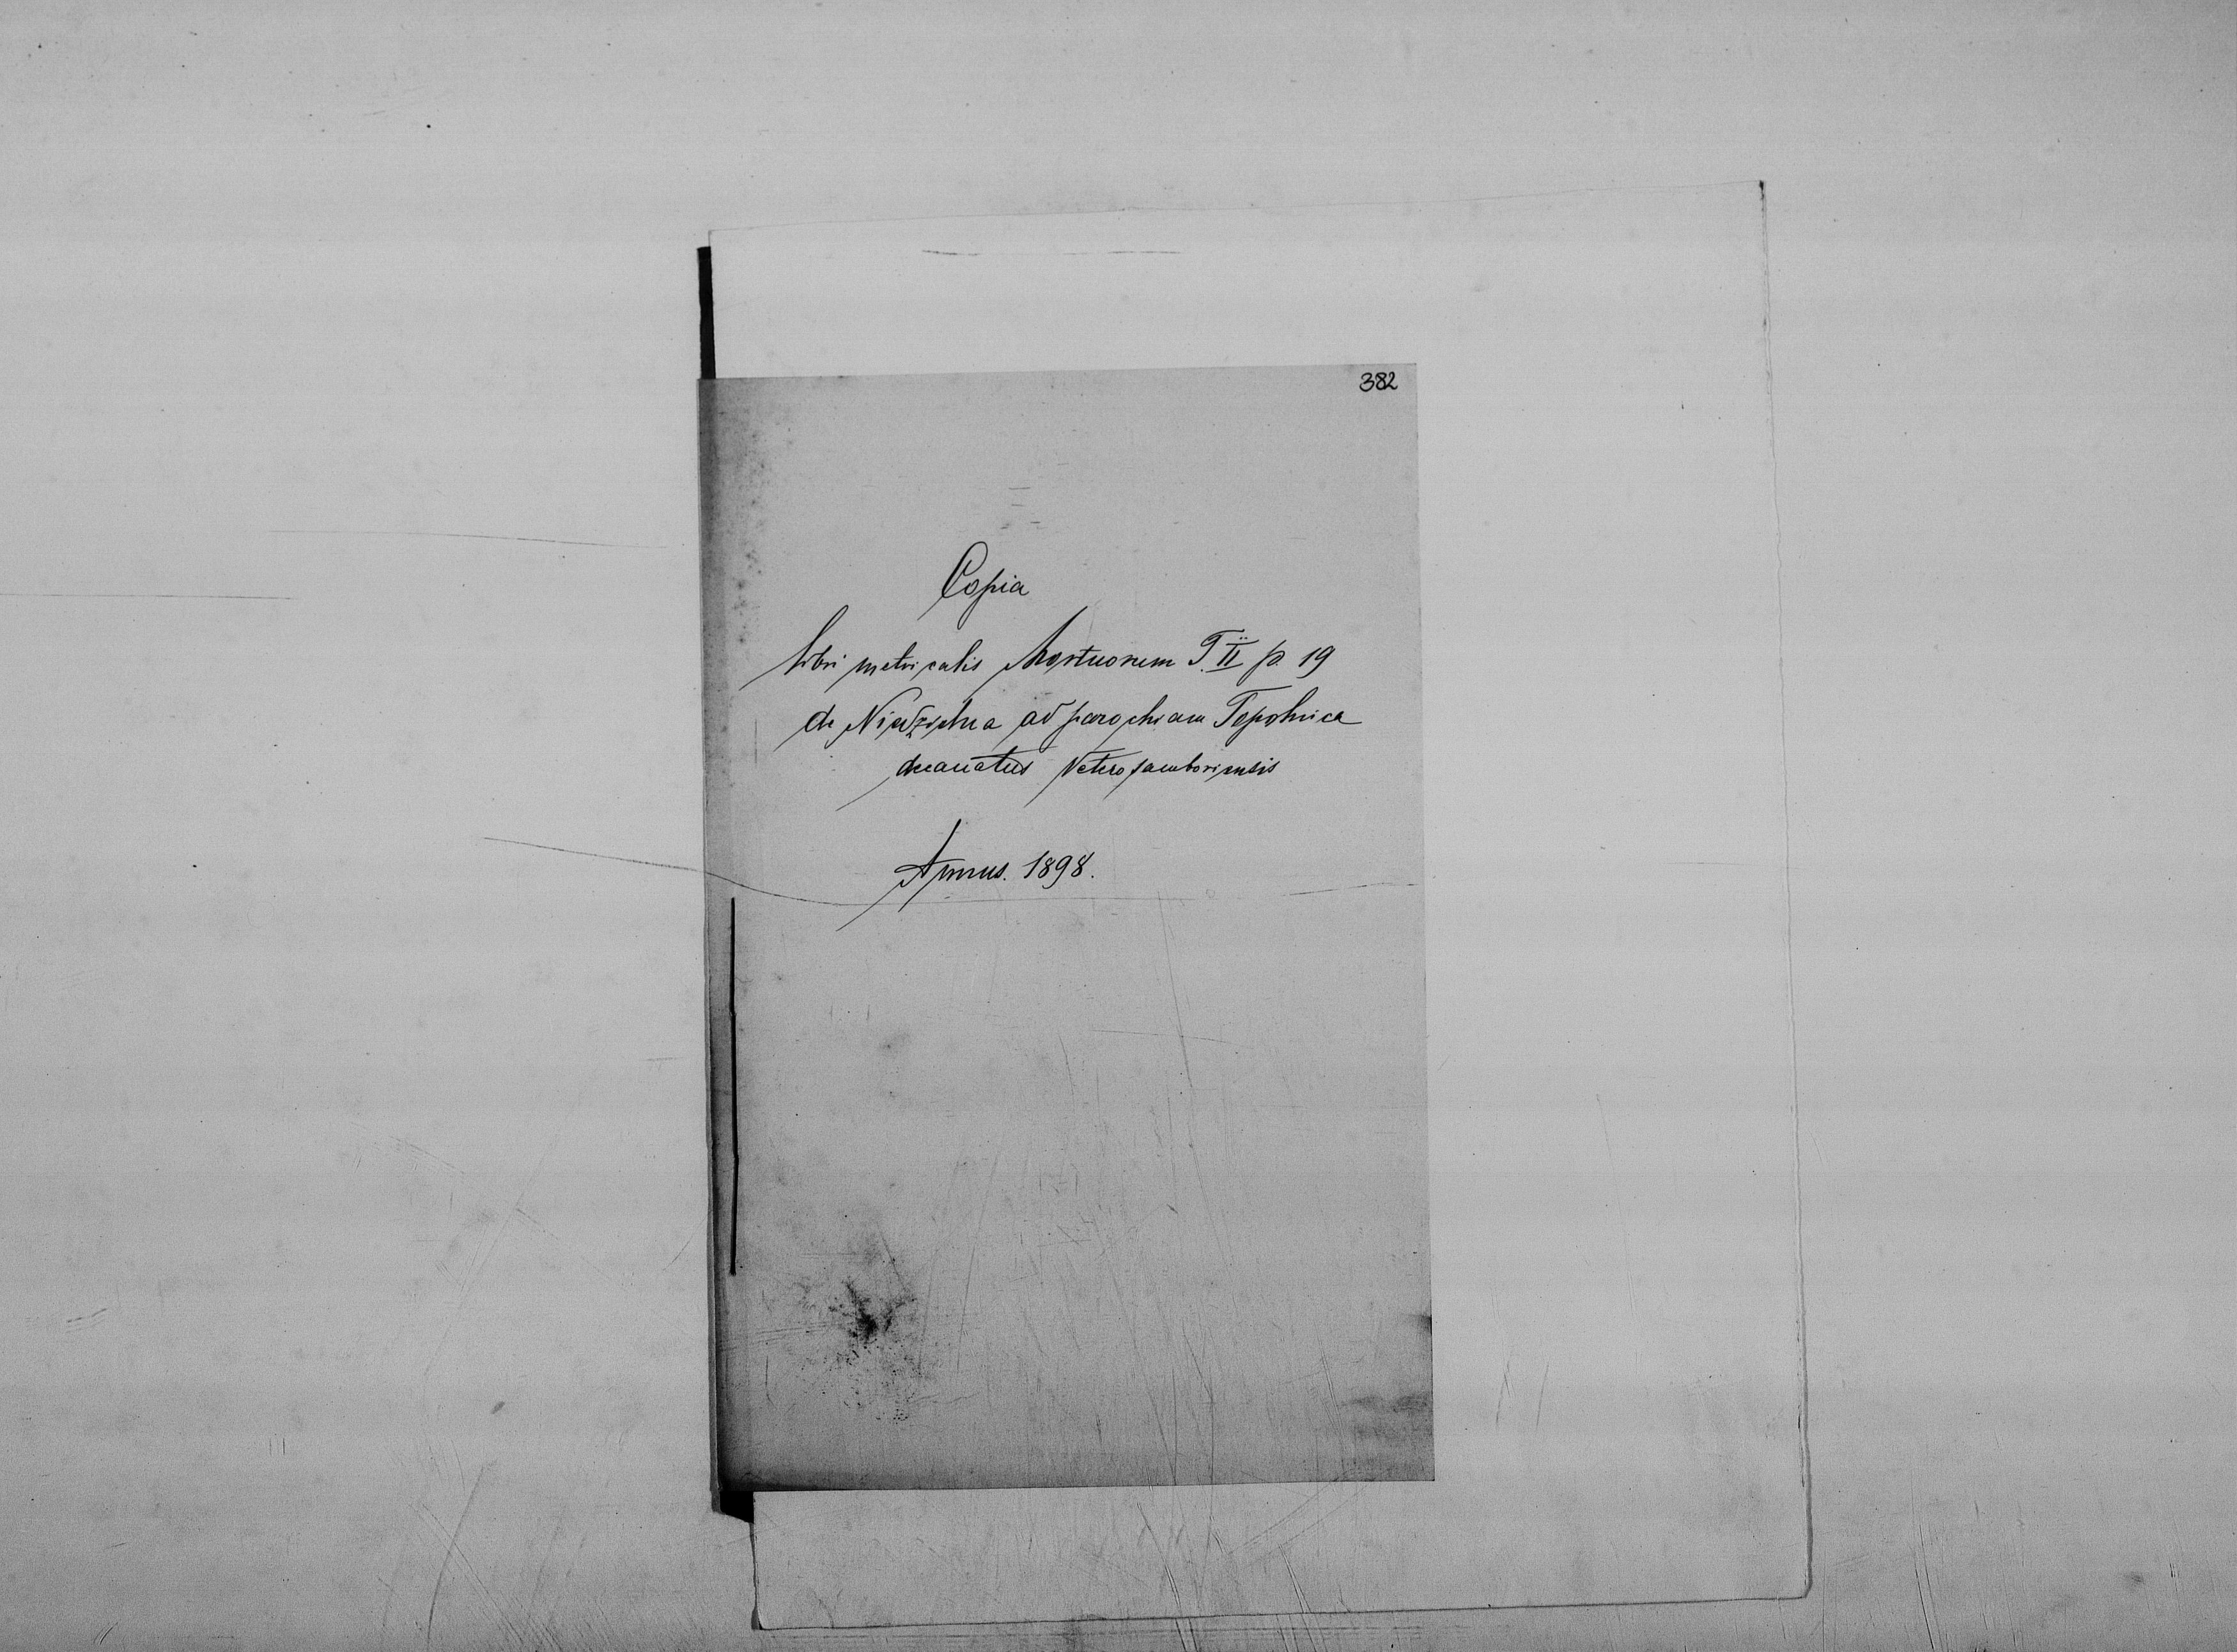 382
Copia
libri metricalis Mortuorum T. II p. 19
de Niedzielna ad parochiam Topolnica
decanatus Veterosamboriensis
Annus. 1898.